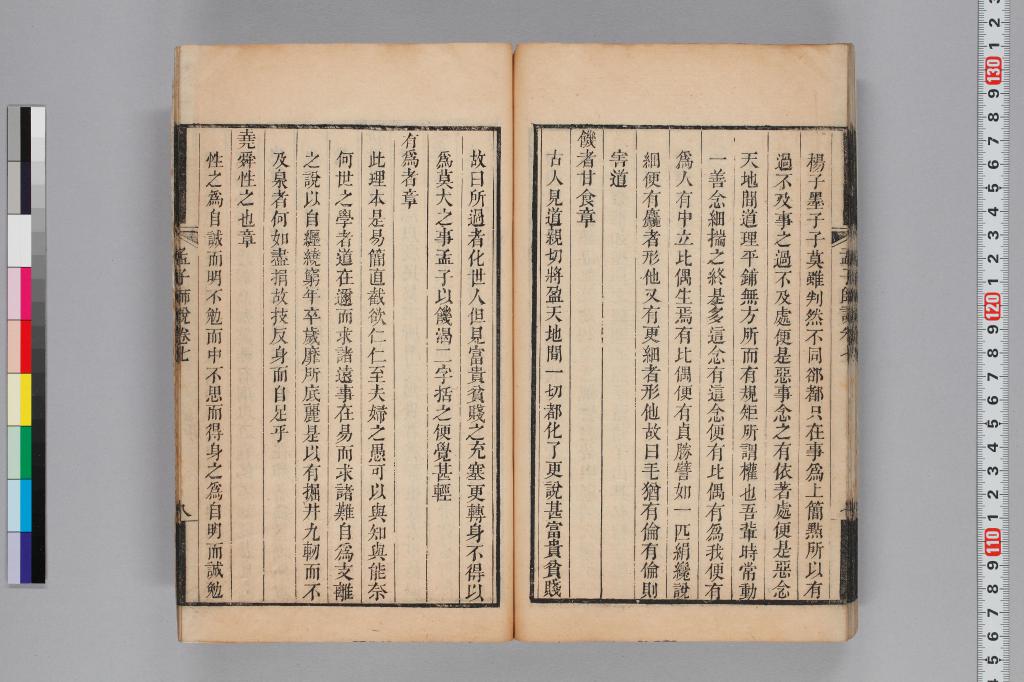 楊子墨子子莫雖判然不同卻都只在事為上簡㸃所以有
過不及事之過不及處便是惡事念之有依著處便是惡念
天地間道理平鋪無方所而有規矩所謂權也吾輩時常動
一善念細揣之終是多這念有這念便有比偶有為我便有
為人有中立比偶生焉有比偶便有貞勝譬如一匹絹纔說
細便有麤者形他又有更細者形他故曰毛猶有倫有倫則
害道
饑者甘食章
古人見道親切將盈天地間一切都化了更說甚富貴貧賤
故曰所過者化世人但見富貴貧賤之充塞更轉身不得以
為莫大之事孟子以饑渴二字括之便覺甚輕
有為者章
此理本是易簡直截欲仁仁至夫婦之愚可以與知與能奈
何世之學者道在邇而求諸遠事在易而求諸難自為支離
之說以自纏繞窮年卒歲靡所底麗是以有掘井九軔而不
及泉者何如盡捐故技反身而自足乎
堯舜性之也章
性之為自誠而明不勉而中不思而得身之為自明而誠勉
孟子師說卷七
八
130
120
110